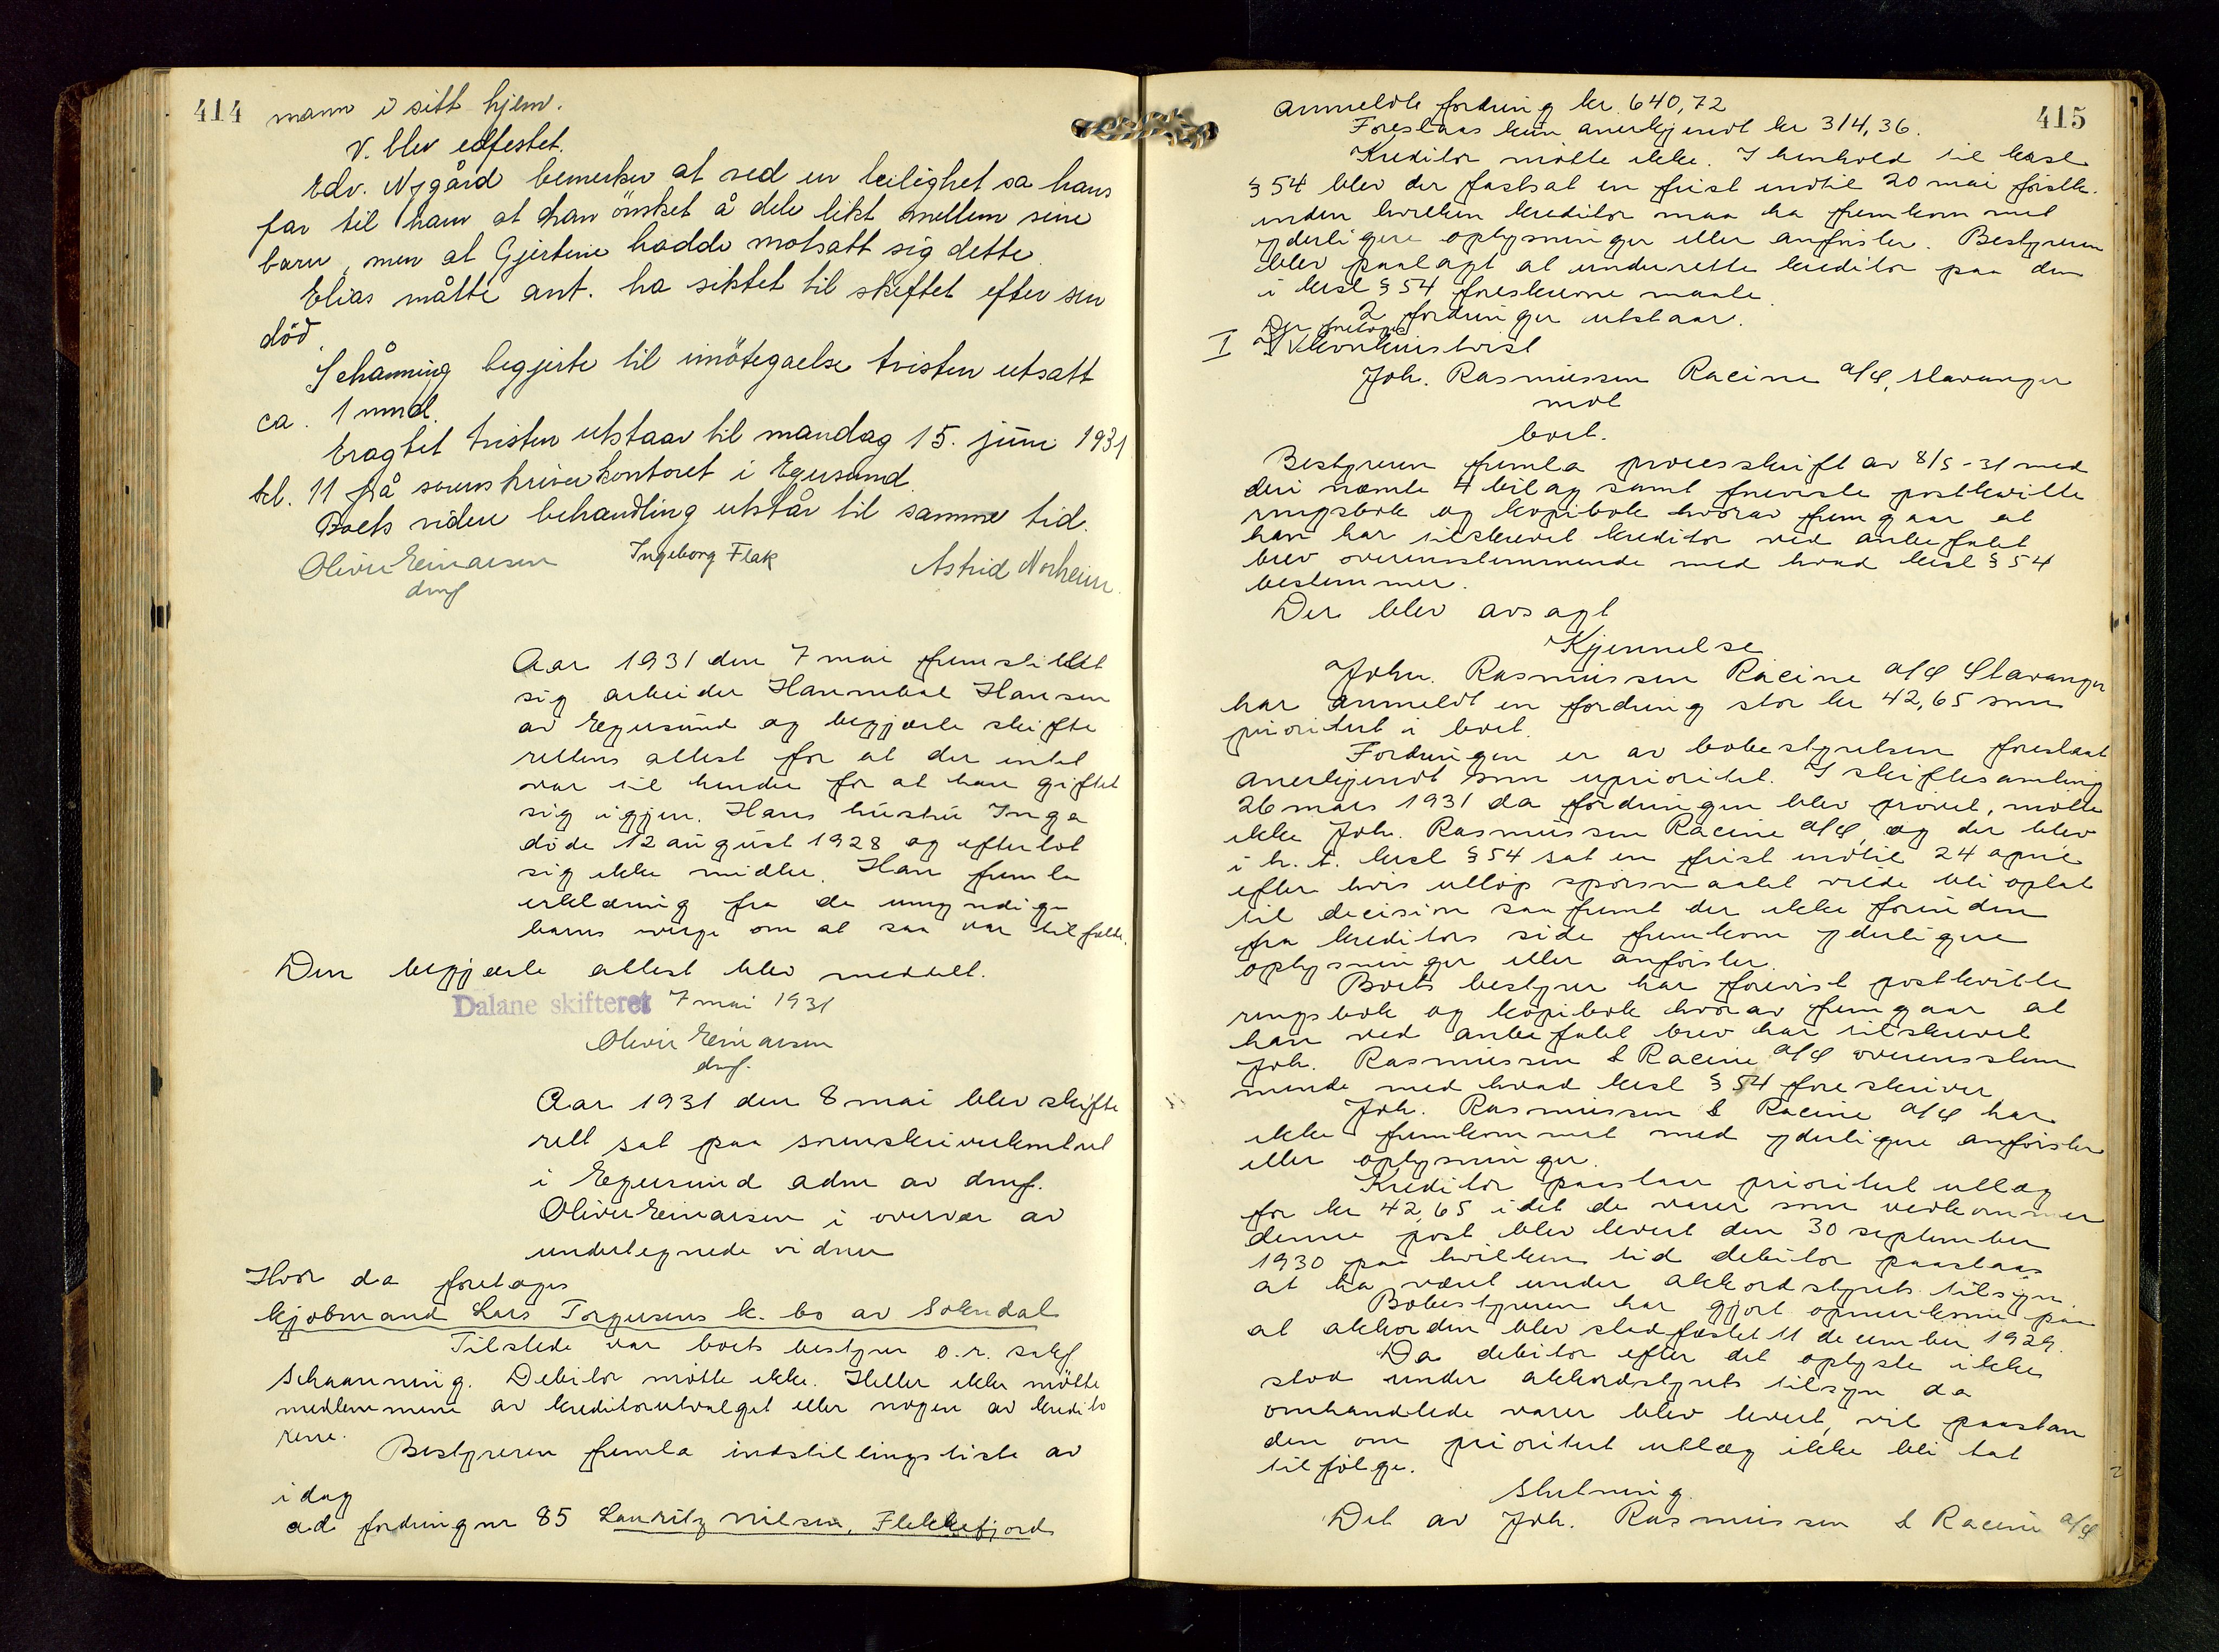 414
mann i sitt hjem.
V. blev edfestet.
Edv. Nygård bemerker at ved en leilighet sa hans
far til ham at han önsket å dele likt mellem sine
barn, men at Gjertine hadde motsatt sig dette.
Elias måtte ant. ha siktet til skiftet efter sin
död.
Schånning begjerte til imötegaelse tvisten utsatt
ca. 1 mnd.
Eragtet tvisten utstaar til mandag 15. juni 1931
kl. 11 på sorenskriverkontoret i Egersund.
Boets videre behandling utstår til samme tid.
Oliver Einarsen Ingeborg Flak Astrid Norheim.
dmf
Aar 1931 den 7 mai fremstillet
sig arbeider Hannibal Hansen
av Egersund og begjærte skifte
rettens attest for at der intet
var til hinder for at han giftet
sig igjen. Hans hustru Inga
döde 12 august 1928 og efterlot
sig ikke midler. Han fremla
erklæring fra de umyndige
barns verge om at saa var tilfælde.
Den begjærte attest blev meddelt.
Dalane skifteret 7 mai 1931
Oliver Einarsen
dmf.
Aar 1931 den 8 mai blev skifte
rett sat paa sorenskriverkontoret
i Egersund adm av dmf.
Oliver Einarsen i overvær av
undertegnede vidner
Hvor da foretages
kjöbmand Lars Torgersens k. bo av Sokndal
Tilstede var boets bestyrer o.r. sakf
Schaanning. Debitor mötte ikke. Heller ikke mötte
medlemmene av kreditorutvalget eller nogen av kredito
rene.
Bestyreren fremla indstillingsliste av
idag
ad fordring nr 85 Lauritz Nilsen, Flekkefjord
415
anmeldte fordring kr 640,72
Foreslaas kun anerkjendt kr 314,36.
Kreditor mötte ikke. I henhold til kksl
§ 54 blev der fastsat en frist indtil 20 mai förstk.
inden hvilken kreditor maa ha fremkom med
yderligere oplysninger eller anförsler. Bestyreren
blev paalagt at underrette kreditor paa den
i kksl § 54 foreskrevne maate.
2 fordringer utstaar.
Der foretoges
I Konkurstvist
Joh. Rasmussen Racine a/s, Stavanger
mot
boet.
Bestyreren fremla processkrift av 8/5-31 med
deri nævnte 4 bilag samt foreviste postkvitte
ringsbok og kopibok hvorav fremgaar at
han har tilskrevet kreditor ved anbefalet
brev overensstemmende med hvad kksl § 54
bestemmer.
Der blev avsagt
Kjennelse
Johs. Rasmussen Racine a/s Stavanger
har anmeldt en fordring stor kr 42,65 som
prioritert i boet.
Fordringen er av bobestyrelsen foreslaat
anerkjendt som uprioritet. I skiftesamling
26 mars 1931 da fordringen blev prövet, mötte
ikke Joh. Rasmussen Racine a/s, og der blev
i h. t. kksl § 54 sat en frist indtil 24 april
efter hvis utlöp spörsmaalet vilde bli optat
til decision saafremt der ikke forinden
fra kreditors side fremkom yderligere
oplysninger eller anförsler.
Boets bestyrer har forevist postkvitte
ringsbok og kopibok hvorav fremgaar at
han ved anbefalet brev har tilskrevet
Joh. Rasmussen & Racine a/s overensstem
mende med hvad kksl § 54 foreskriver
Joh. Rasmussen & Racine a/s har
ikke fremkommet med yderligere anförsler
eller oplysninger.
Kreditor paastaar prioritert utlæg
for kr 42,65 idet de varer som vedkommer
denne post blev levert den 30 september
1930 paa hvilken tid debitor paastaas
at ha været under akkordstyrets tilsyn.
Bobestyreren har gjort opmerksom paa
at akkorden blev stadfæstet 11 december 1929.
Da debitor efter det oplyste ikke
stod under akkordstyrets tilsyn da
omhandlede varer blev levert, vil paastan
den om prioritert utlæg ikke bli tat
tilfölge.
Slutning
Det av Joh. Rasmussen & Racine a/s